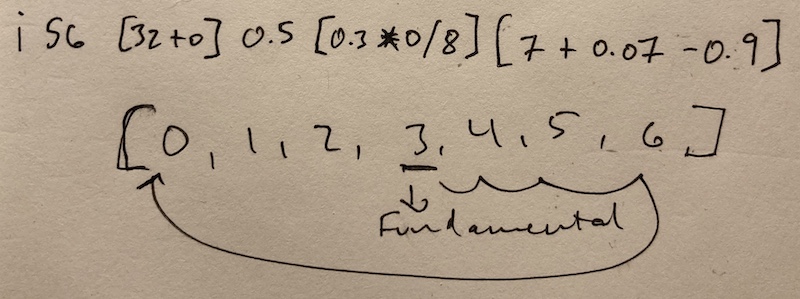 i 56 [32+0] 0.5 [0.3*0/8] [7 + 0.07 - 0.9]
[0, 1, 2, 3, 4, 5, 6]
Fundamental